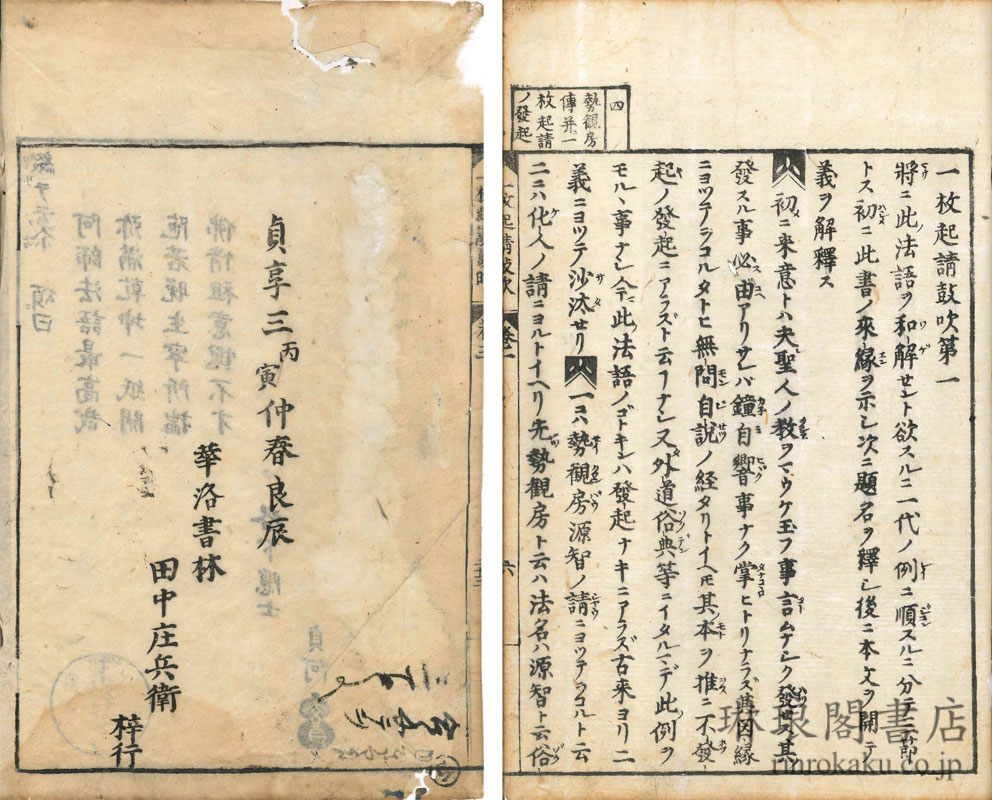 四
勢観房
傳并ニ一
枚起請
ノ發起
一枚起請鼓吹第一
將ニ此法語ヲ和解セント欲スルニ二代ノ例ニ順スルニ分テ三節
トス初ニ此書ノ來縁ヲ示シ次ニ題名ヲ釋シ後ニ本文ヲ開テ
義ヲ解釋ス
初ニ来意トハ夫聖人ノ教ヲマウケ玉フ事言ムナシク發セス其
發スル事必由アリサレバ鐘自響事ナク掌ヒトリナラズ其因縁
ニヨツテヲコルタトヒ無問自説ノ経タリトイヘモ其本ヲ推ニ不發
起ノ發起ニアラズト云フナシ又外道俗典等ニイタルマデ此例ヲ
モルヽ事ナシ今此法語ノゴトキンハ發起ナキニアラズ古来ヨリ二
義ニヨツテ沙汰セリ 一ニハ勢観房源智ノ請ニヨツテヲコルト云
二ニハ化人ノ請ニヨルトイヘリ先勢観房ト云ハ法名ハ源智ト云俗
一枚起請鼓吹
六
琳琅閣書店
rinrokaku.co.jp
貞享三丙寅仲春良辰
華洛書林
田中庄兵衛
梓行